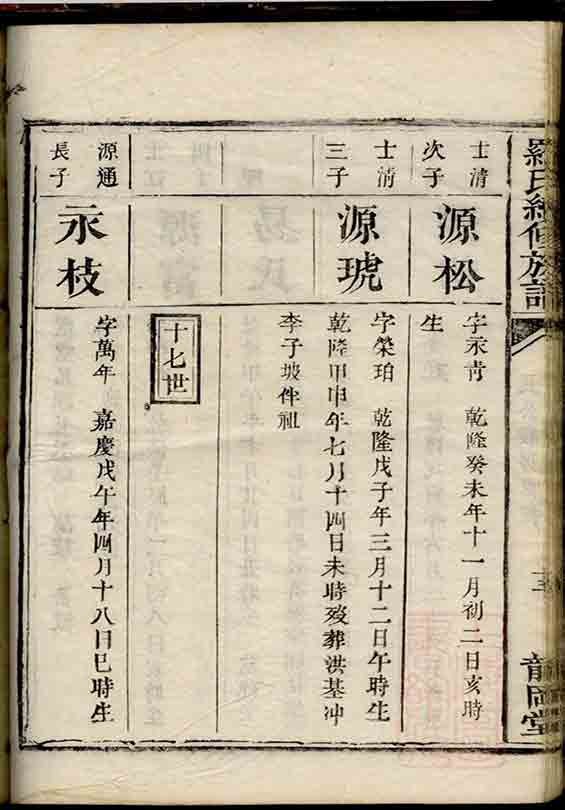 羅氏續修族譜
龍岡堂
士清
次子
源松
字永青 乾隆癸未年十一月初二日亥時
生
士清
三子
源琥
字榮珀 乾隆戊子年三月十二日午時生
乾隆甲申年七月十四日未時歿葬洪基冲
李子坡伴祖
十七世
源通
長子
永枝
字萬年 嘉慶戊午年四月十八日巳時生